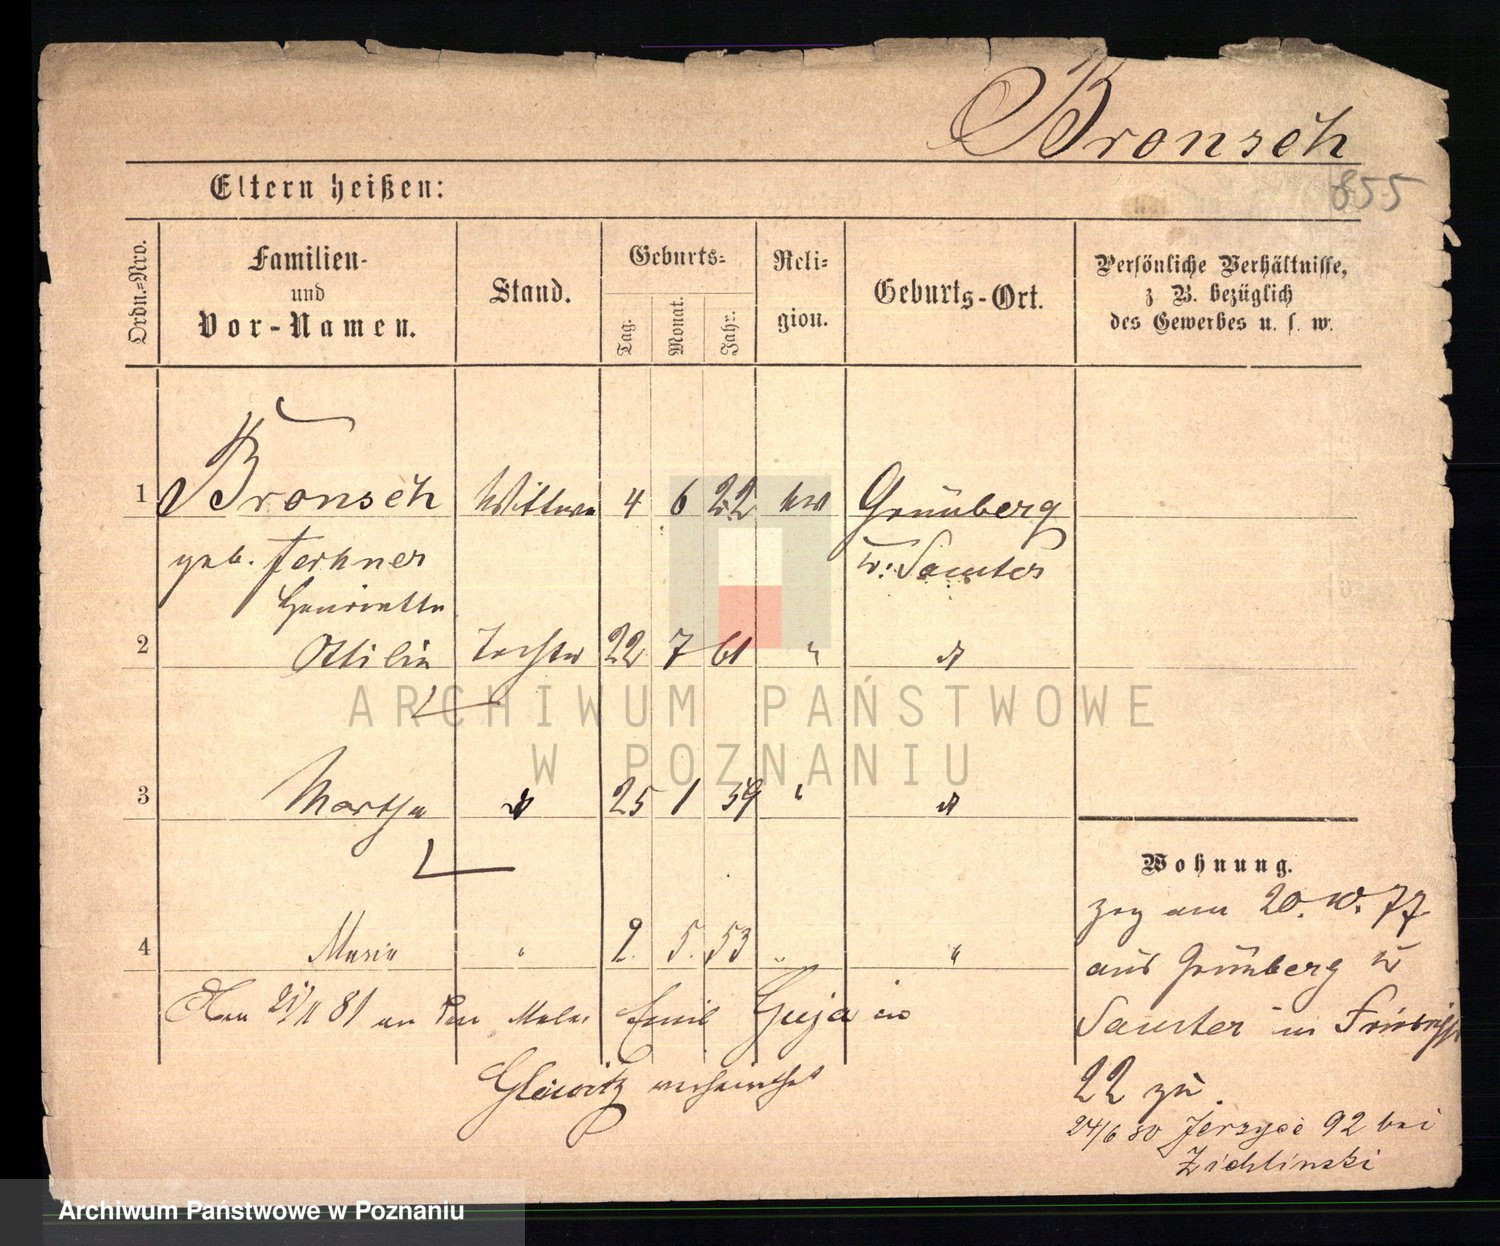 Bronsch
855
Eltern heißen:
Ordn.=Nro.
Familien-
und
Vor-Namen.
Stand.
Geburts=
Tag.
Monat.
Jahr.
Reli=
gion.
Geburts-Ort.
Persönliche Verhältnisse,
z B. bezüglich
des Gewerbes u. s. w.
1 Bronsch Wittwe 4 6 22 Grünberg
geb. Samter
Henriette
2 Ottilie Tochter 22 7 61 "
3 Martha 25 1 59 "
4 Marie " 2. 5. 53 " "
Wohnung.
zog am 20. 10. 77
aus Grünberg
Samter in
22 zu
24/6 80 Jerzyce 92 bei
Zichlinski
81 an den Maler Emil Guja in
Gleiwitz verheirathet
ARCHIWUM PAŃSTWOWE
W POZNANIU
Archiwum Państwowe w Poznaniu